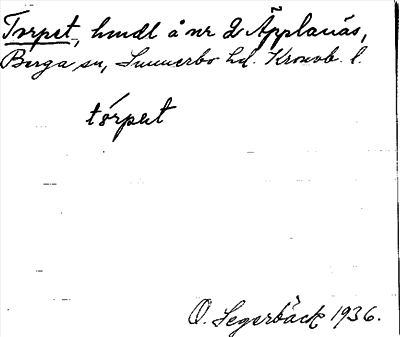 Torpet, hmdl å nr 2 Äpplanäs,
Berga sn, Sunnerbo hd. Kronob. l.
tórpet
O. Segerbäck 1936.